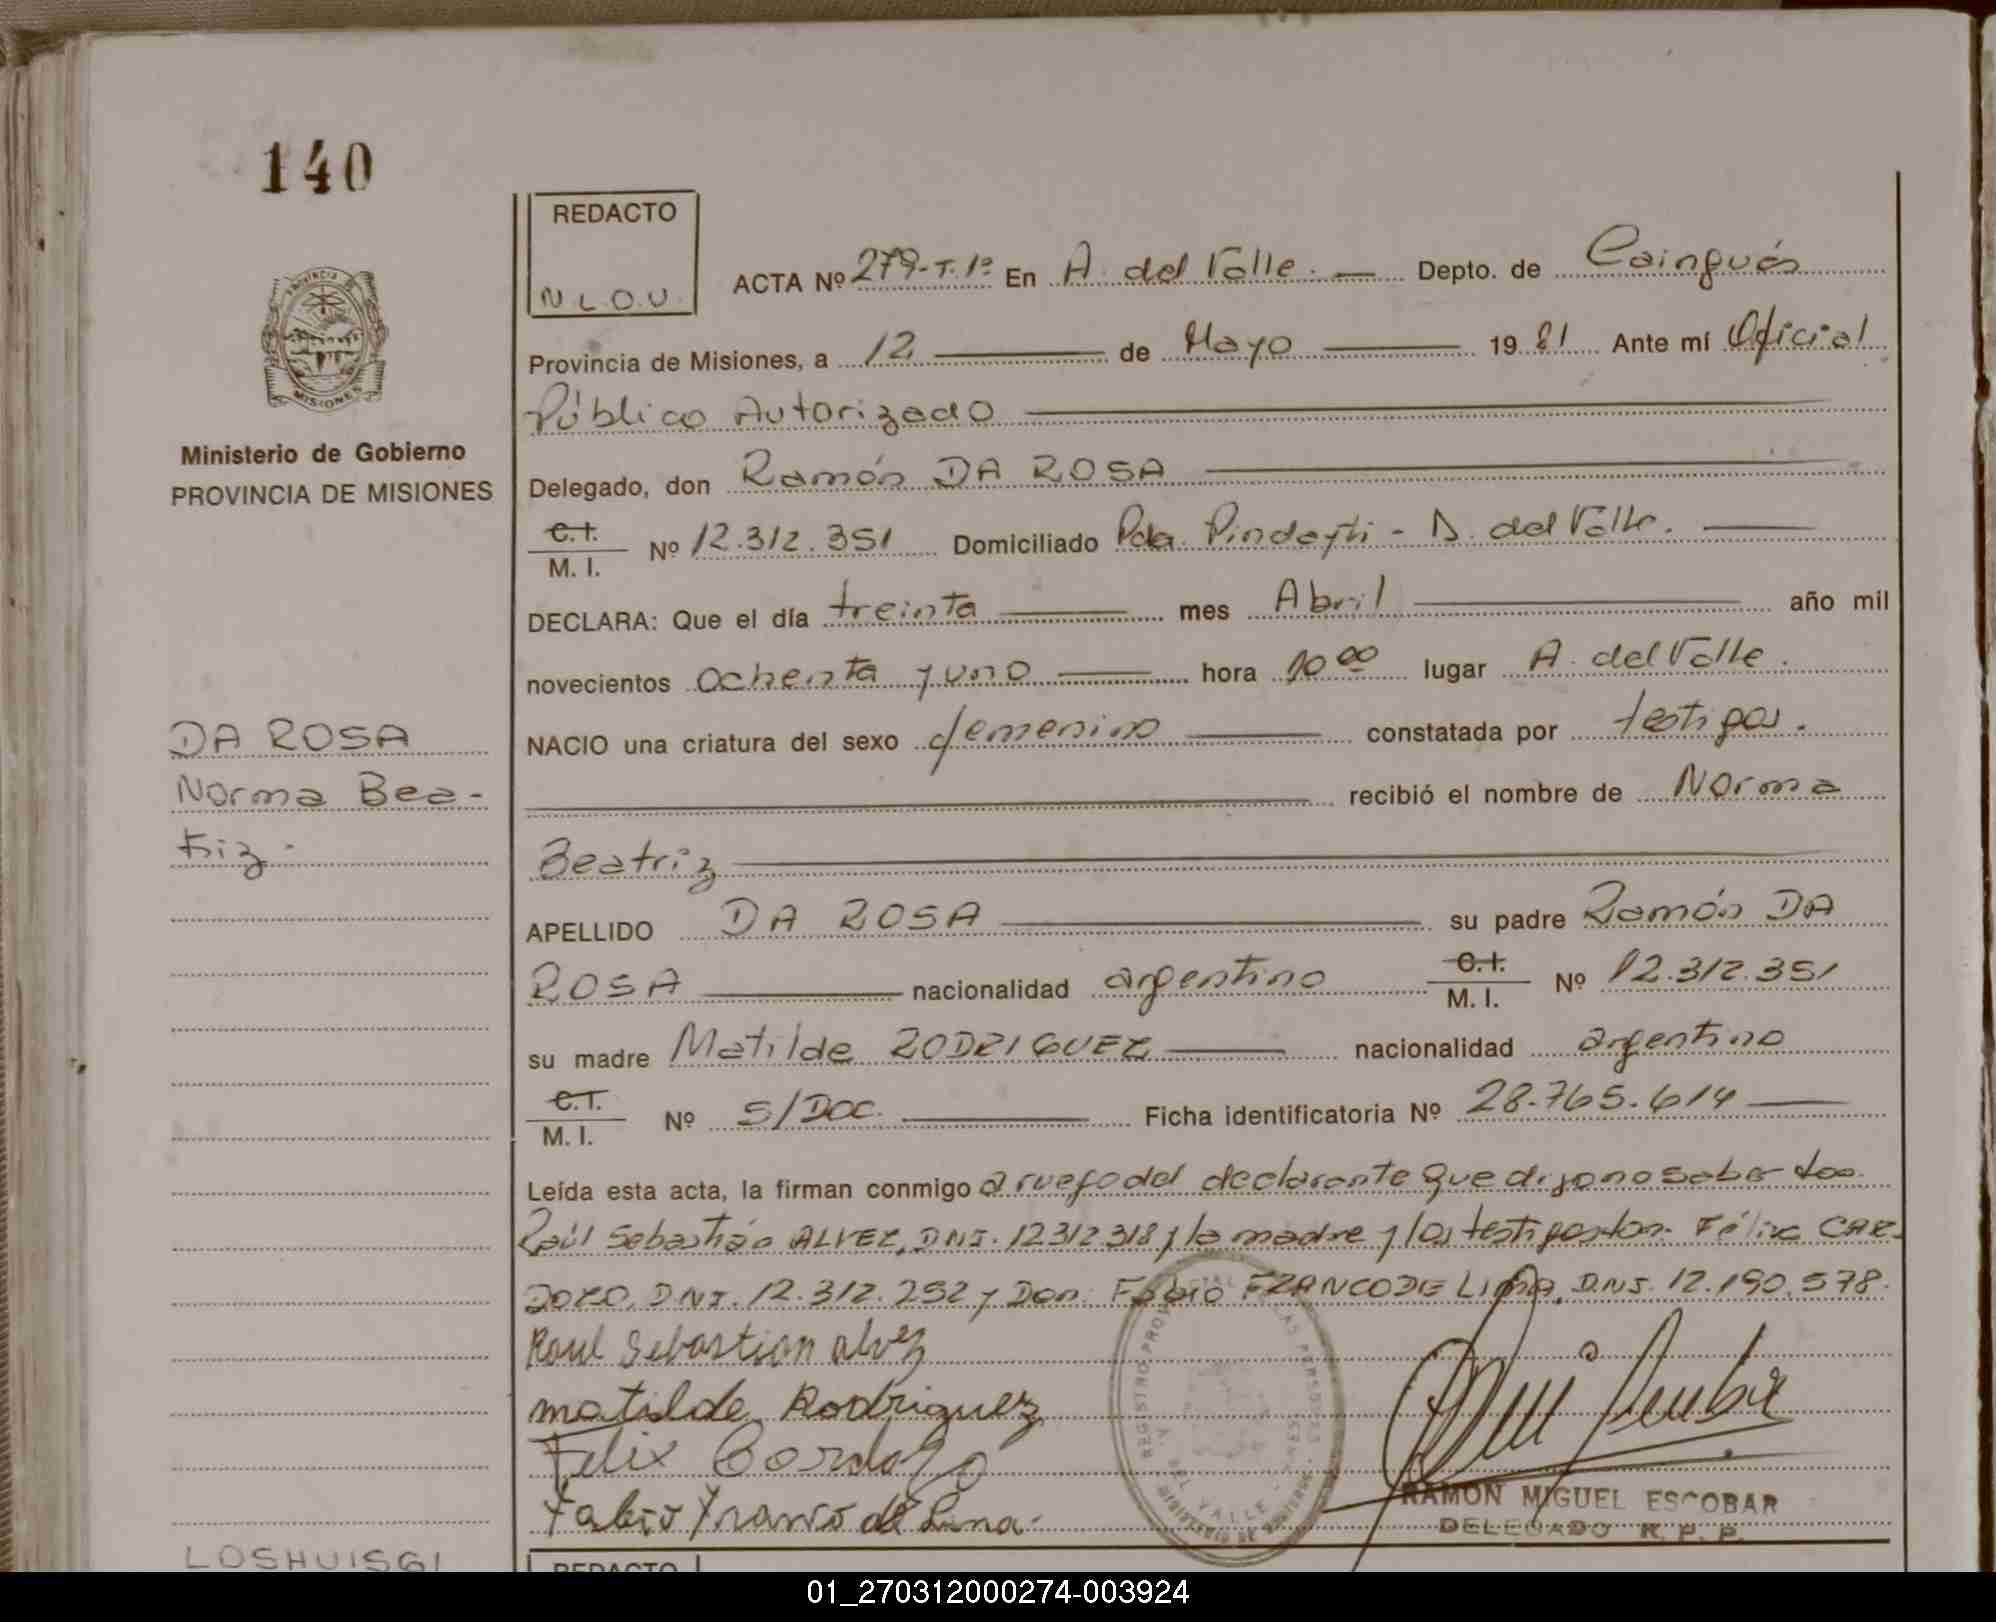 140
REDACTO
N.L.O.V.
ACTA Nº 279-T.1º En A. del Valle. Depto. de Cainguás
Provincia de Misiones, a 12 de Mayo 1981 Ante mí Oficial
Público Autorizado
PROVINCIA
MISIONES
Ministerio de Gobierno
PROVINCIA DE MISIONES
Delegado, don Ramón DA ROSA
C.I.
M. I. Nº 12.312.351 Domiciliado Pda. Pindayti - A. del Valle.
DECLARA: Que el día treinta mes Abril año mil
novecientos ochenta y uno hora 10 00 lugar A. del Valle.
DA ROSA
Norma Bea-
triz.
NACIO una criatura del sexo femenino constatada por testigos.
recibió el nombre de Norma
Beatriz
APELLIDO DA ROSA su padre Ramón DA
ROSA nacionalidad argentino C.I. M. I. Nº 12.312.351
su madre Matilde RODRIGUEZ nacionalidad argentino
C.I.
M. I. Nº S/Doc. Ficha identificatoria Nº 28.765.614
Leída esta acta, la firman conmigo a ruego del declarante que dijo no saber don
Raúl Sebastián ALVEZ, DNI. 12312318 y la madre y los testigos don. Félix CAR-
DOZO, DNI. 12.312.252 y Don. Fabio FRANCO DE LIMA, DNI. 12.190.578.
Raul Sebastian alvez
matilde Rodriguez
Felix Cardozo
Fabio Franco de Lima.
REGISTRO PROVINCIAL DE LAS PERSONAS
A. DEL VALLE - MISIONES
MINISTERIO DE GOBIERNO
RAMON MIGUEL ESCOBAR
DELEGADO R. P. P.
LOSHUISGI
REDACTO
01_270312000274-003924